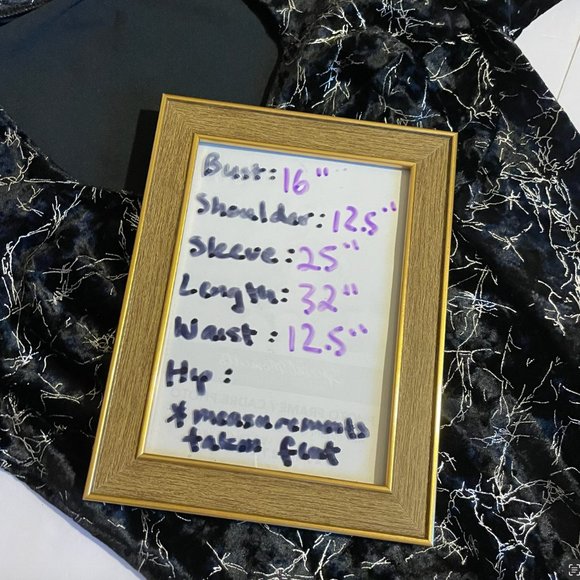 Bust: 16"
Shoulder: 12.5"
Sleeve: 25"
Length: 32"
Waist: 12.5"
Hip:
* measurements
taken flat